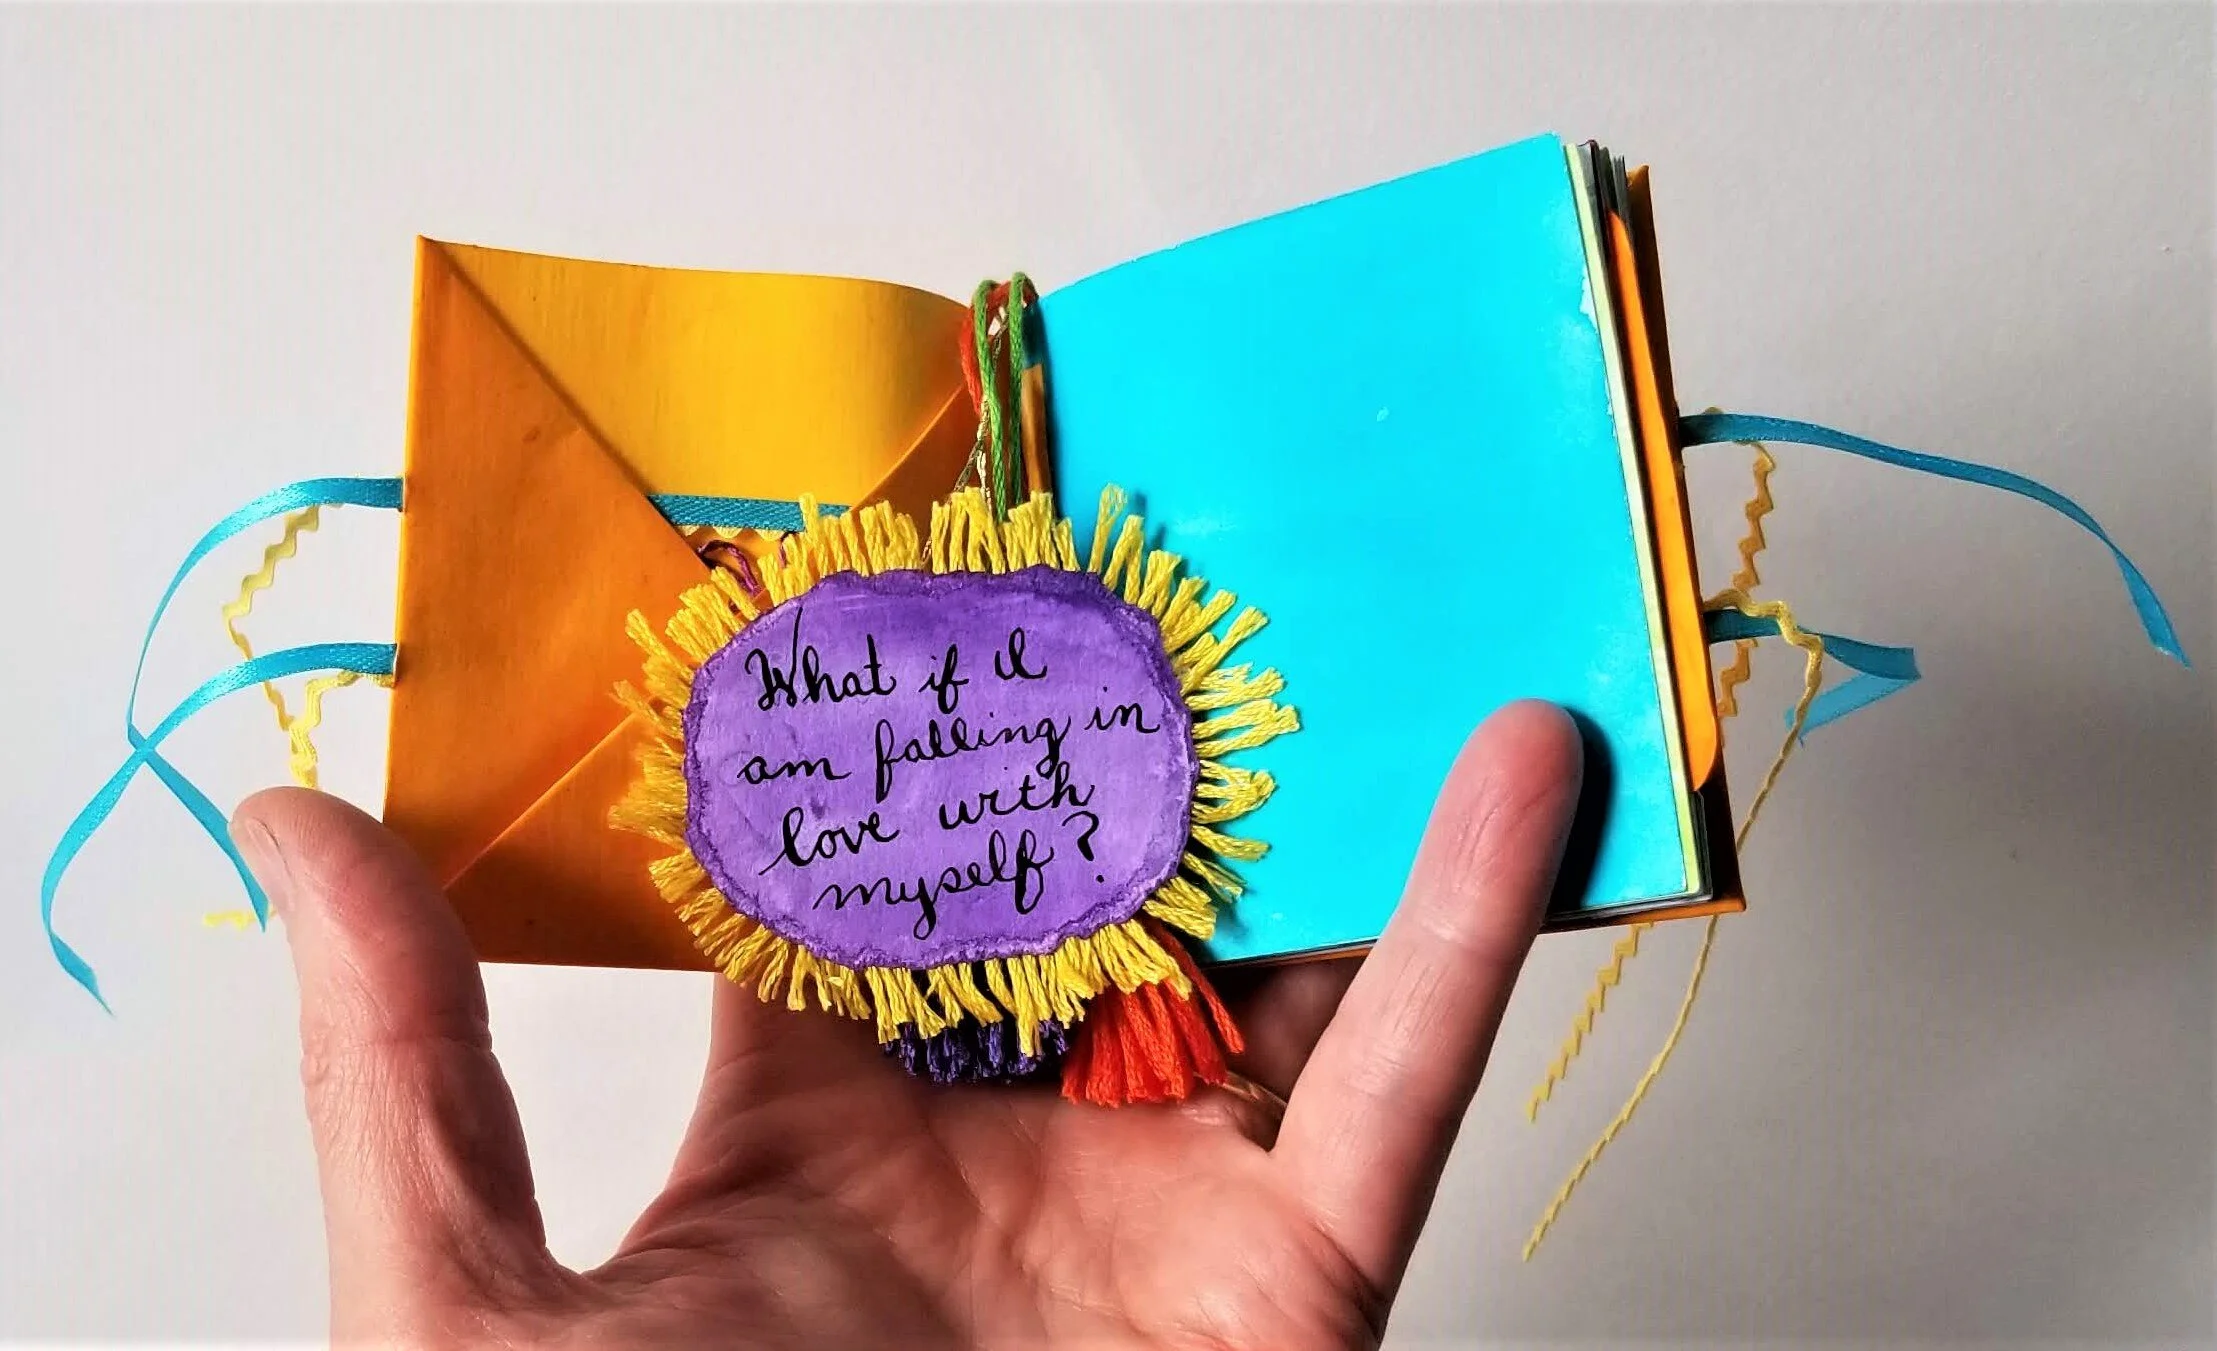 What if I
am falling in
love with
myself?